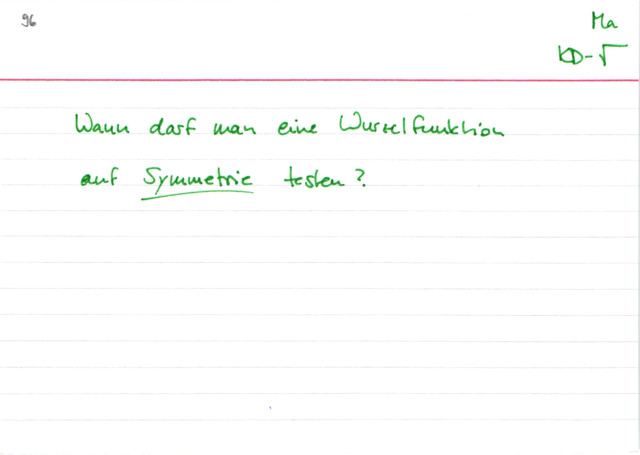 96
Ma
KD-√
Wann darf man eine Wurzelfunktion
auf Symmetrie testen?